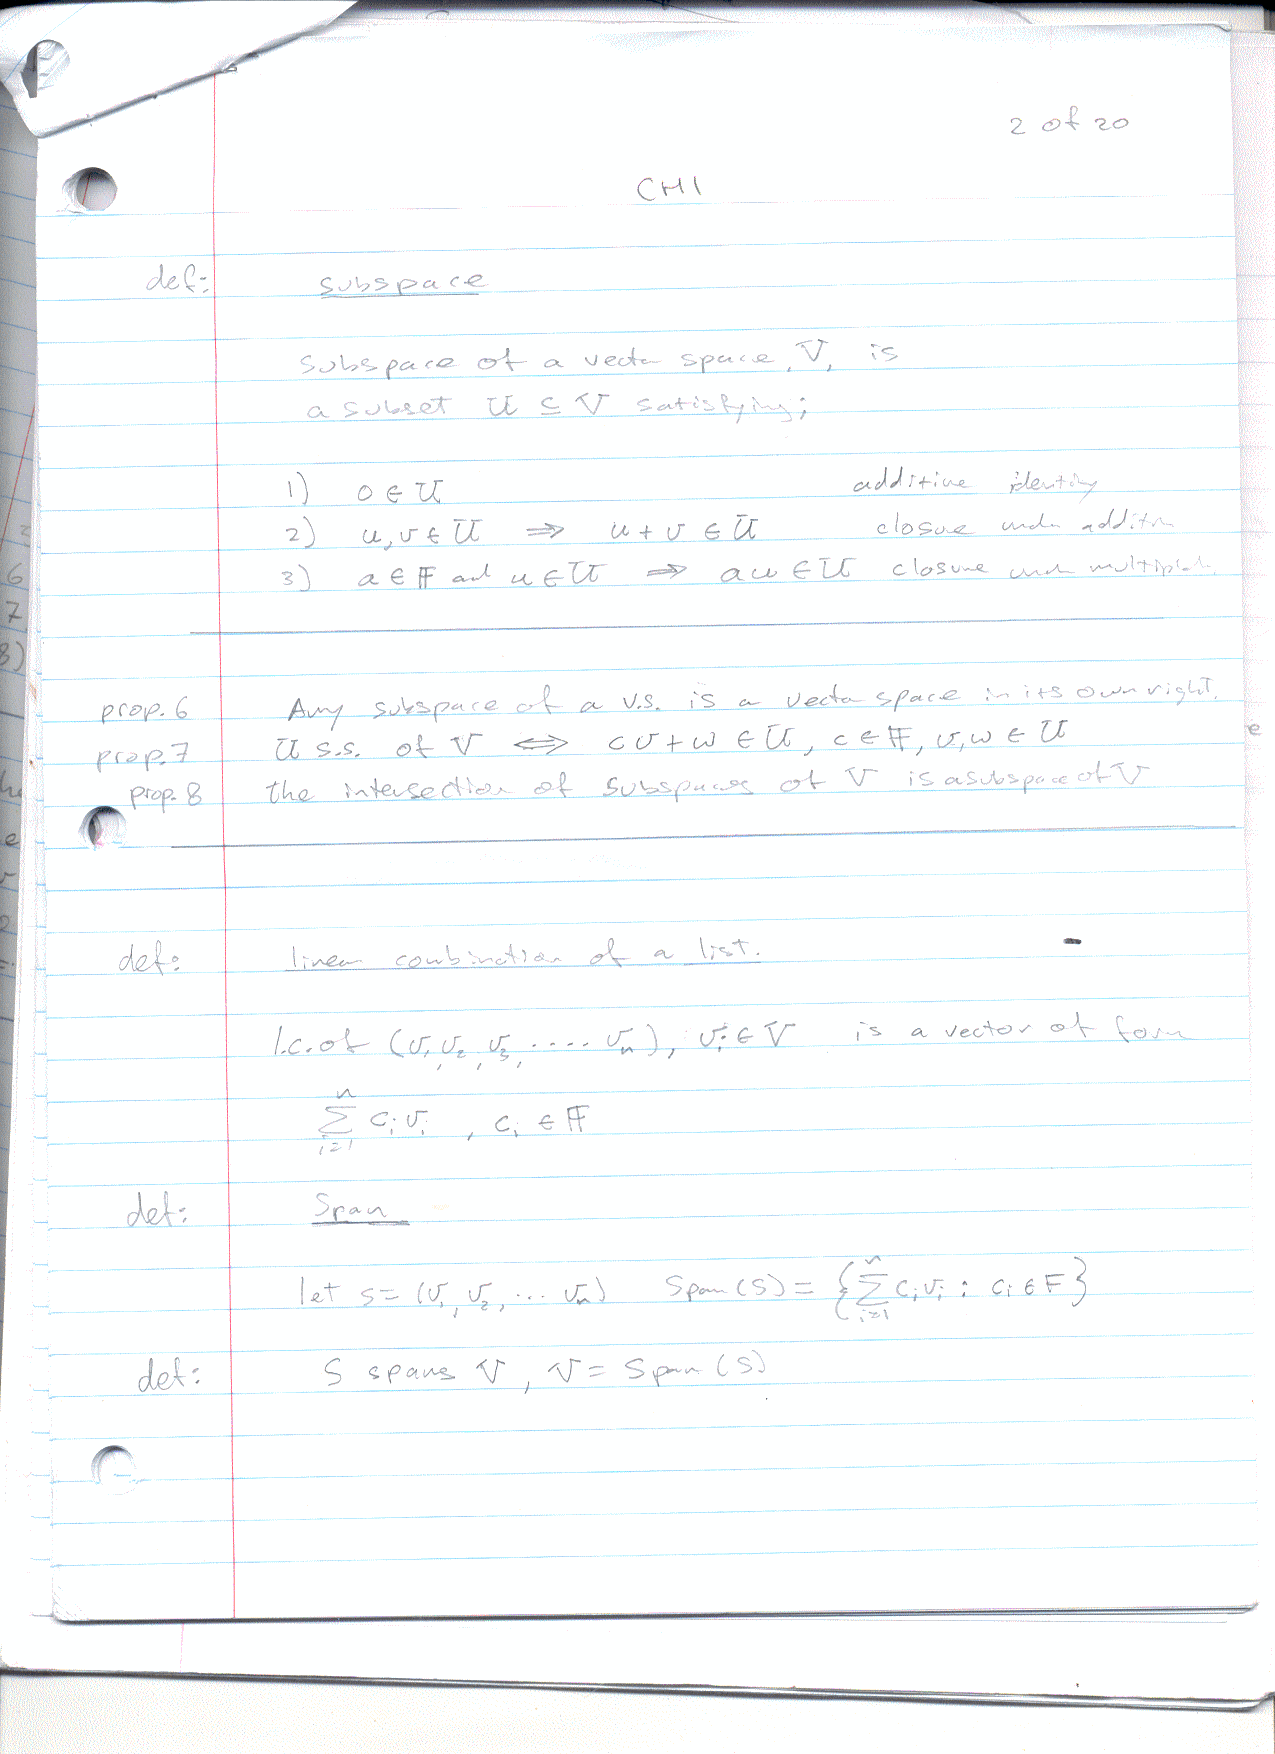 2 of 20
CH1
def: subspace
subspace of a vector space, V, is
a subset U ⊆ V satisfying;
1) 0 ∈ U additive identity
2) u, v ∈ U ⇒ u + v ∈ U closure under addition
3) a ∈ F and u ∈ U ⇒ au ∈ U closure under multiplicat.
prop. 6 Any subspace of a v.s. is a vector space in its own right.
prop. 7 U s.s. of V ⇔ cv + w ∈ U, c ∈ F, v, w ∈ U
prop. 8 the intersection of subspaces of V is a subspace of V
def: linear combination of a list.
l.c. of (v₁, v₂, v₃, .... vₙ), vᵢ ∈ V is a vector of form
∑ᵢ₌₁ⁿ cᵢvᵢ , cᵢ ∈ F
def: Span
let s = (v₁, v₂, ... vₙ) Span(S) = {∑ᵢ₌₁ⁿ cᵢvᵢ : cᵢ ∈ F}
def: S spans V, V = Span(S)